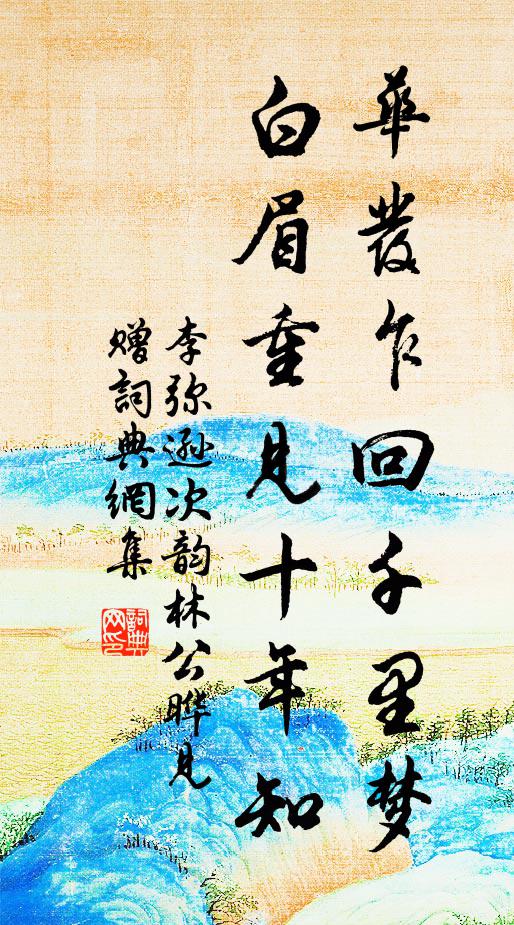 華發乍回千里梦
白眉重見十年知
李弥遜次韵林公曄見
赠詞典網集
詞典
网印